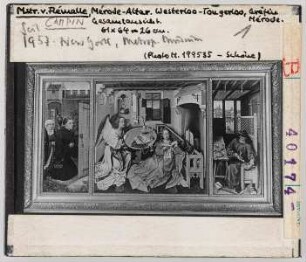 Mstr. v. Flémalle, Mérode-Altar. Westerloo-Tongerloo, Gräfin Mérode.
Seit CAMPIN Gesamtansicht.
61 x 64 = 26 cm.
1957: New York, Metrop. Museum
(Photo M. 199535 - Schöne)
1
B
40174